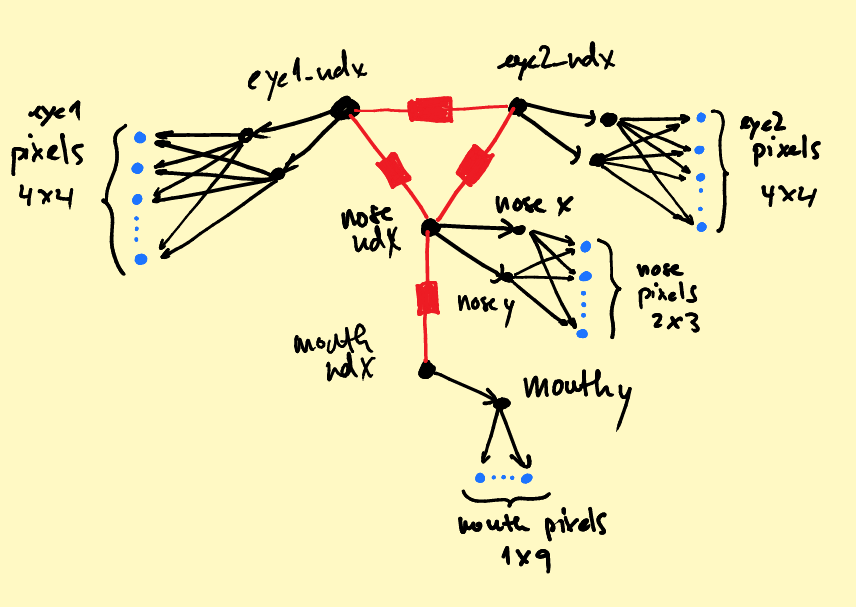 eye1_ndx
eye2_ndx
eye1
pixels
4x4
eye2
pixels
4x4
nose
ndx
nose x
nose y
nose
pixels
2x3
mouth
ndx
mouthy
mouth pixels
1x9